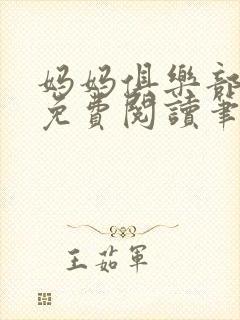 媽媽俱樂部
免費閱讀筆
王茹軍